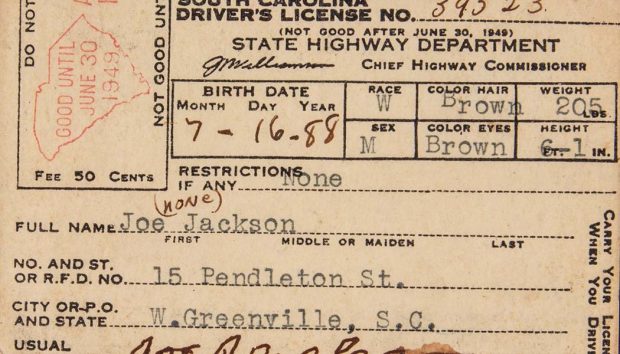 SOUTH CAROLINA
DRIVER'S LICENSE NO.
(NOT GOOD AFTER JUNE 30, 1949)
STATE HIGHWAY DEPARTMENT
CHIEF HIGHWAY COMMISSIONER
DO NOT
GOOD UNTIL
JUNE 30
1949
NOT GOOD UNT
FEE 50 CENTS
BIRTH DATE
MONTH DAY YEAR
7 - 16 - 88
RACE COLOR HAIR WEIGHT
W Brown 205 LBS.
SEX COLOR EYES HEIGHT
M Brown 6 FT. 1 IN.
RESTRICTIONS
IF ANY None
(none)
FULL NAME Joe Jackson
FIRST MIDDLE OR MAIDEN LAST
NO. AND ST.
OR R.F.D. NO. 15 Pendleton St.
CITY OR P.O.
AND STATE W.Greenville, S.C.
USUAL
CARRY YOUR LICEN
WHEN YOU DRIV